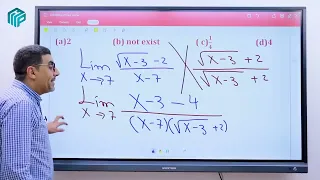 (a)2 (b) not exist (c) 1/4 (d)4
Lim X→7 (√X-3 -2)/(X-7) × (√X-3 +2)/(√X-3 +2)
Lim X→7 (X-3-4)/((X-7)(√X-3 +2))